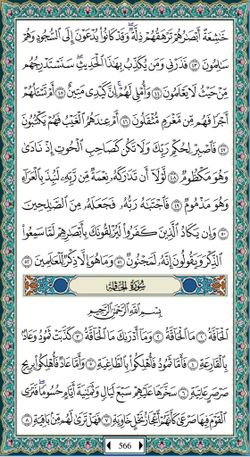 خَٰشِعَةً أَبْصَٰرُهُمْ تَرْهَقُهُمْ ذِلَّةٌ ۖ وَقَدْ كَانُوا۟ يُدْعَوْنَ إِلَى ٱلسُّجُودِ وَهُمْ
سَٰلِمُونَ ٤٣ فَذَرْنِى وَمَن يُكَذِّبُ بِهَٰذَا ٱلْحَدِيثِ ۖ سَنَسْتَدْرِجُهُم
مِّنْ حَيْثُ لَا يَعْلَمُونَ ٤٤ وَأُمْلِى لَهُمْ ۚ إِنَّ كَيْدِى مَتِينٌ ٤٥ أَمْ تَسْـَٔلُهُمْ
أَجْرًا فَهُم مِّن مَّغْرَمٍ مُّثْقَلُونَ ٤٦ أَمْ عِندَهُمُ ٱلْغَيْبُ فَهُمْ يَكْتُبُونَ
٤٧ فَٱصْبِرْ لِحُكْمِ رَبِّكَ وَلَا تَكُن كَصَاحِبِ ٱلْحُوتِ إِذْ نَادَىٰ
وَهُوَ مَكْظُومٌ ٤٨ لَّوْلَآ أَن تَدَٰرَكَهُۥ نِعْمَةٌ مِّن رَّبِّهِۦ لَنُبِذَ بِٱلْعَرَآءِ
وَهُوَ مَذْمُومٌ ٤٩ فَٱجْتَبَٰهُ رَبُّهُۥ فَجَعَلَهُۥ مِنَ ٱلصَّٰلِحِينَ
٥٠ وَإِن يَكَادُ ٱلَّذِينَ كَفَرُوا۟ لَيُزْلِقُونَكَ بِأَبْصَٰرِهِمْ لَمَّا سَمِعُوا۟
ٱلذِّكْرَ وَيَقُولُونَ إِنَّهُۥ لَمَجْنُونٌ ٥١ وَمَا هُوَ إِلَّا ذِكْرٌ لِّلْعَٰلَمِينَ ٥٢
سُورَةُ الْحَاقَّةِ
بِسْمِ ٱللَّهِ ٱلرَّحْمَٰنِ ٱلرَّحِيمِ
ٱلْحَآقَّةُ ١ مَا ٱلْحَآقَّةُ ٢ وَمَآ أَدْرَىٰكَ مَا ٱلْحَآقَّةُ ٣ كَذَّبَتْ ثَمُودُ وَعَادٌۢ
بِٱلْقَارِعَةِ ٤ فَأَمَّا ثَمُودُ فَأُهْلِكُوا۟ بِٱلطَّاغِيَةِ ٥ وَأَمَّا عَادٌ فَأُهْلِكُوا۟ بِرِيحٍ
صَرْصَرٍ عَاتِيَةٍ ٦ سَخَّرَهَا عَلَيْهِمْ سَبْعَ لَيَالٍ وَثَمَٰنِيَةَ أَيَّامٍ حُسُومًا فَتَرَى
ٱلْقَوْمَ فِيهَا صَرْعَىٰ كَأَنَّهُمْ أَعْجَازُ نَخْلٍ خَاوِيَةٍ ٧ فَهَلْ تَرَىٰ لَهُم مِّنۢ بَاقِيَةٍ ٨
566